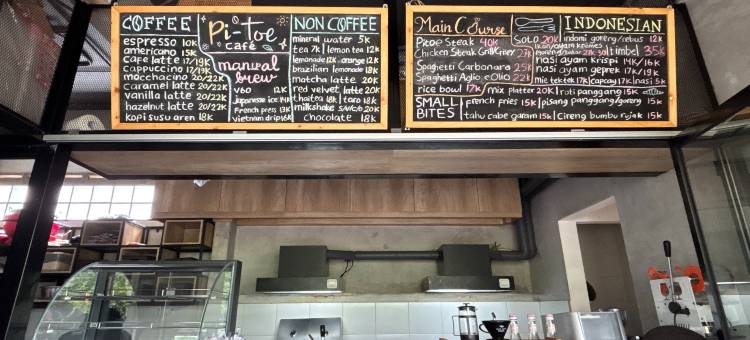 COFFEE
espresso 10K
americano 15K
cafe latte 17/19K
cappuccino 17/19K
mocchacino 20/22K
caramel latte 20/22K
vanilla latte 20/22K
hazelnut latte 20/22K
kopi susu aren 18K
Pi-toe
cafe
manual
brew
V60 12K
Japanese ice 14K
French press 13K
vietnam drip 16K
NON COFFEE
mineral water 5K
tea 7K | lemon tea 12K
lemonade 12K orange 12K
brazilian lemonade 18K
matcha latte 20K
red velvet latte 20K
thaitea 18K | taro 18K
milkshake 20K
chocolate 18K
Main Course
Steak 40K
Chicken Steak
Spaghetti Carbonara 25K
Spaghetti Aglio e Olio 22K
rice bowl 17K
mix platter 20K
SMALL
BITES
french fries 15K | pisang panggang/goreng 15K
tahu cabe garam 15K | Cireng bumbu rujak 15K
INDONESIAN
Soto 20K
indomi goreng/rebus 12K
timbel 35K
nasi ayam krispi 14K/16K
nasi ayam geprek 17K/19K
mie tektek 17K | capcay 17K | nasi 5K
roti panggang 15K